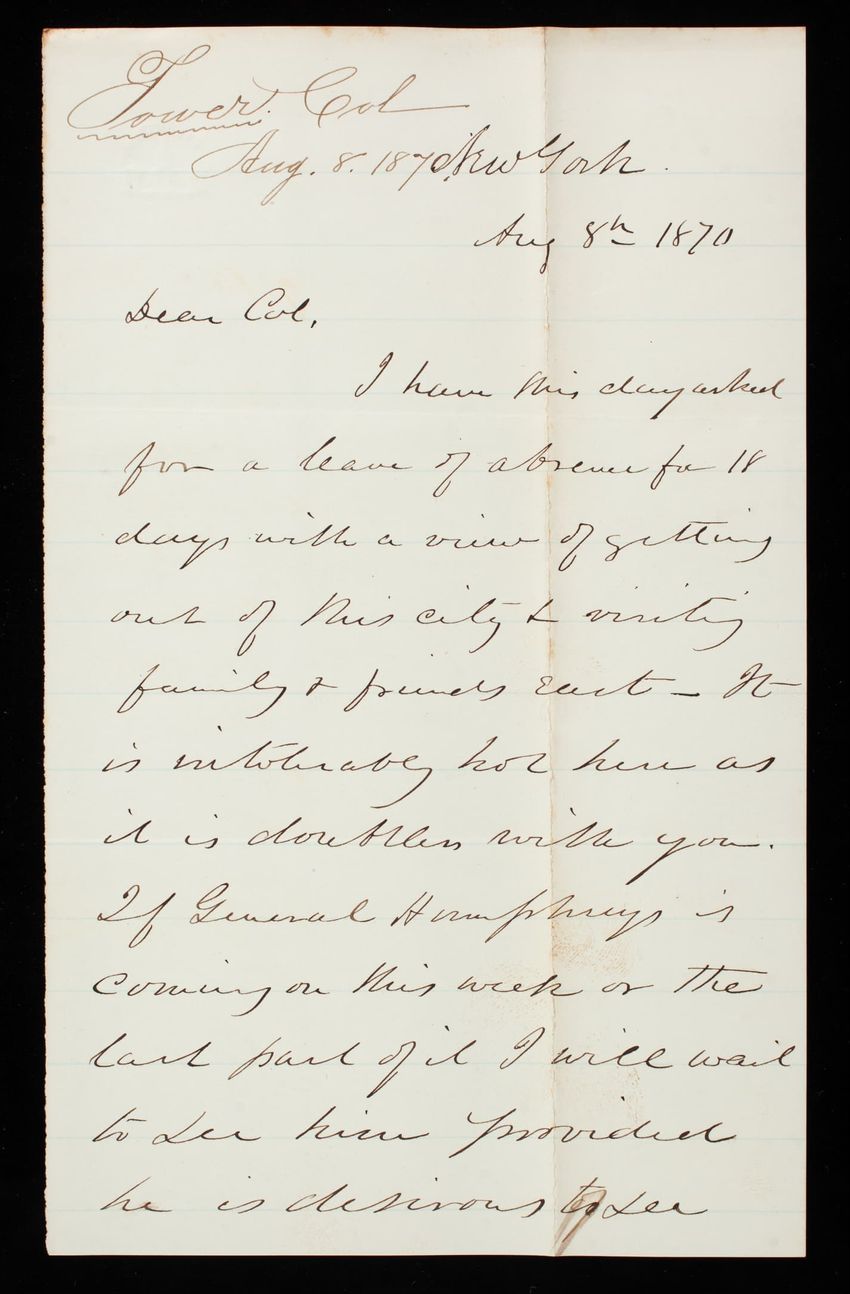 Tower. Col
Aug. 8. 1870
New York.
Aug 8th 1870
Dear Col.
I have this day asked
for a leave of absence for 18
days with a view of getting
out of this city & visiting
family & friends East - It
is intolerably hot here as
it is doubtless with you.
If General Humphreys is
coming on this week or the
last part of it I will wait
to see him provided
he is desirous to see